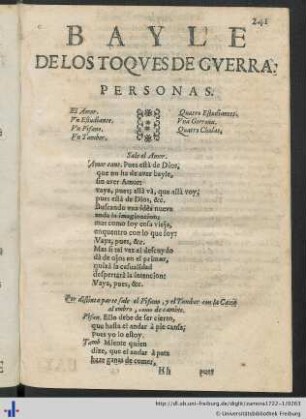 241
BAYLE
DE LOS TOQVES DE GVERRA.
PERSONAS.
El Amor.
Vn Estudiante.
Vn Pifano.
Vn Tambor.
Quatro Estudiantes.
Vna Gorrona.
Quatro Chulas.
Sale el Amor.
Amor cant. Pues està de Dios,
que no ha de aver bayle,
sin aver Amor:
vaya, pues està và, que està voy;
pues està de Dios, &c.
Buscando una idèa nueva
anda la imaginacion;
mas como soy cosa vieja,
enquentro con lo que soy:
Vaya, pues, &c.
Mas si tal vez al descuydo
dà de ojos en el primor,
quizà la casualidad
despertarà la intencion:
Vaya, pues, &c.
Por distinta parte sale el Pifano, y el Tambor con la Caxa
al ombro, como de camino.
Pifan. Ello debe de ser cierto,
que hasta el andar à pie cansa;
pues yo lo estoy.
Tamb. Miente quien
dize, que el andar à pata
haze ganas de comer,
Hh
pues
http://dl.ub.uni-freiburg.de/diglit/zamora1722-1/0263
© Universitätsbibliothek Freiburg